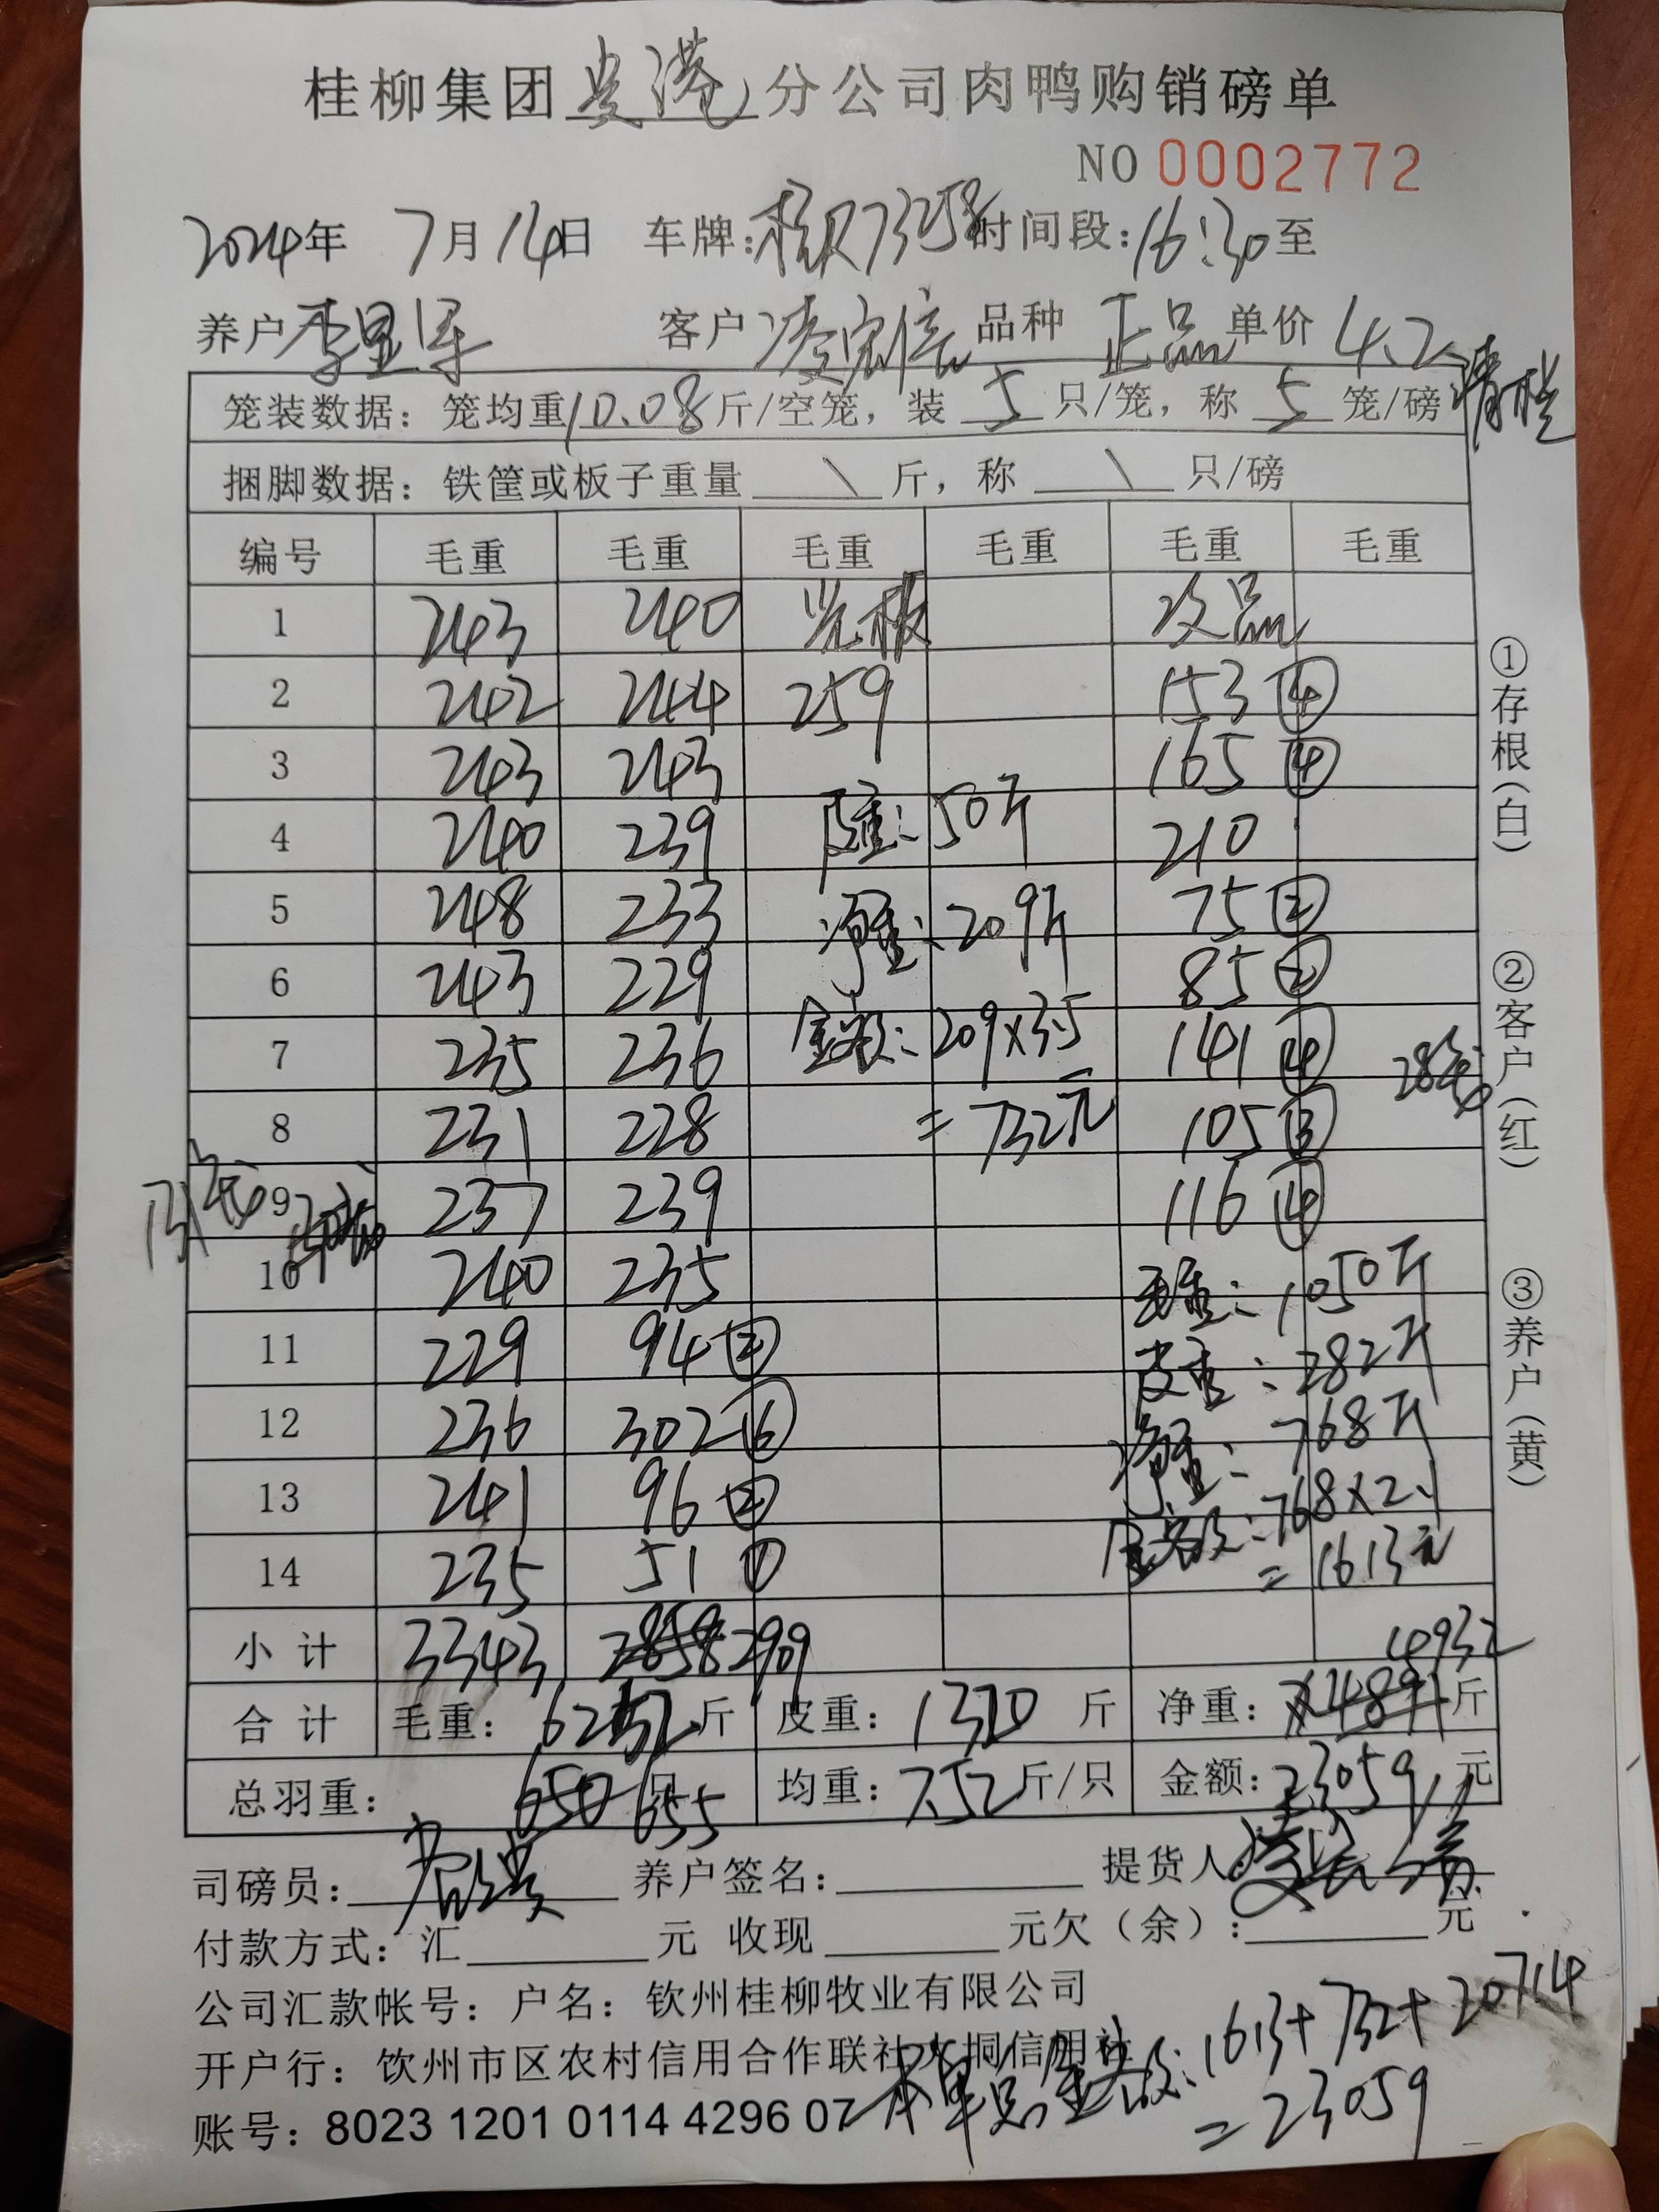 桂柳集团贵港分公司肉鸭购销磅单
NO 0002772
2024年 7月14日 车牌:桂R73258 时间段:16:30至
养户 李显军 客户 凌家信 品种 正品 单价 4.2
笼装数据: 笼均重10.08斤/空笼, 装 5 只/笼, 称 5 笼/磅
捆脚数据: 铁筐或板子重量 \ 斤, 称 \ 只/磅
编号 毛重 毛重 毛重 毛重 毛重 毛重
1 243 240 光板 次品
2 242 244 259 153 ④
3 243 243 165 ④
4 240 239 皮重: 50斤 210
5 248 233 净重: 209斤 75 ②
6 243 229 85 ②
7 235 236 金额: 209×3.5 141 ④
8 231 228 =732元 105 ③
28笼
9 237 239 116 ④
131笼
10 240 235 毛重: 1050斤
11 229 94 ② 皮重: 282斤
12 236 302 ⑥ 净重: 768斤
13 241 96 ② 金额: 768×2.1
14 235 51 ① =1613元
小计 3343 2858 2909 4932
合计 毛重: 6252斤 皮重: 1320 斤 净重: 斤
总羽重: 650 只 655 均重: 7.52斤/只 金额: 23059元
司磅员: 养户签名: 提货人:
付款方式: 汇 元 收现 元欠(余): 元
公司汇款帐号: 户名: 钦州桂柳牧业有限公司
开户行: 钦州市区农村信用合作联社大垌信用社
账号: 8023 1201 0114 4296 07
本单总金额: 1613+732+20714
=23059
①存根(白)
②客户(红)
③养户(黄)